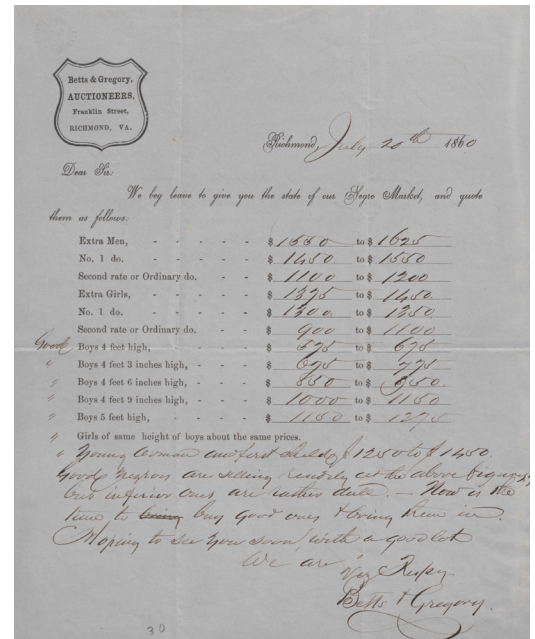 Betts & Gregory,
AUCTIONEERS,
Franklin Street,
RICHMOND, VA.
Richmond, July 20th 1860
Dear Sir:
We beg leave to give you the state of our Negro Market, and quote
them as follows:
Extra Men, - - - - - $ 1550 to $ 1625
No. 1 do. - - - - - $ 1450 to $ 1550
Second rate or Ordinary do. - - $ 1100 to $ 1200
Extra Girls, - - - - - $ 1375 to $ 1450
No. 1 do. - - - - - $ 1300 to $ 1350
Second rate or Ordinary do. - - $ 900 to $ 1100
Good Boys 4 feet high, - - - - $ 575 to $ 675
" Boys 4 feet 3 inches high, - - - $ 675 to $ 775
" Boys 4 feet 6 inches high, - - - $ 850 to $ 950
" Boys 4 feet 9 inches high, - - - $ 1000 to $ 1150
" Boys 5 feet high, - - - - $ 1150 to $ 1275
" Girls of same height of boys about the same prices.
" Young Woman and first child $1250 to $1450.
Good Negros are selling readily at the above figures
but inferior ones are rather dull. — Now is the
time to bring buy good ones & bring them in.
Hoping to see you soon with a good lot
We are
Very Respy.
Betts & Gregory.
30